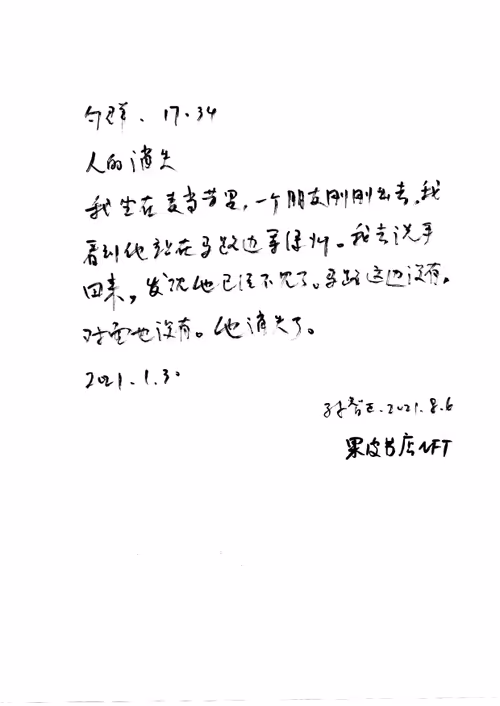 句群、17.34
人的消失
我坐在麦当劳里，一个朋友刚刚出去。我
看到他站在马路边等绿灯。我去洗手
回来，发现他已经不见了。马路这边没有，
对面也没有。他消失了。
2021.1.30
孙智正.2021.8.6
果皮书店NFT